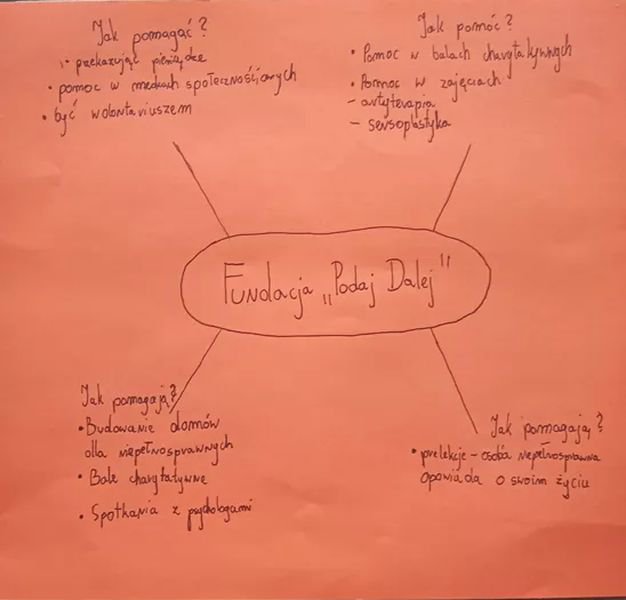 Jak pomagać?
• przekazując pieniądze
• pomoc w mediach społecznościowych
• być wolontariuszem
Jak pomóc?
• Pomoc w balach charytatywnych
• Pomoc w zajęciach
- artyterapia
- sensoplastyka
Fundacja „Podaj Dalej"
Jak pomagają?
• Budowanie domów
dla niepełnosprawnych
• Bale charytatywne
• Spotkania z psychologami
Jak pomagają?
• prelekcje - osoba niepełnosprawna
opowiada o swoim życiu